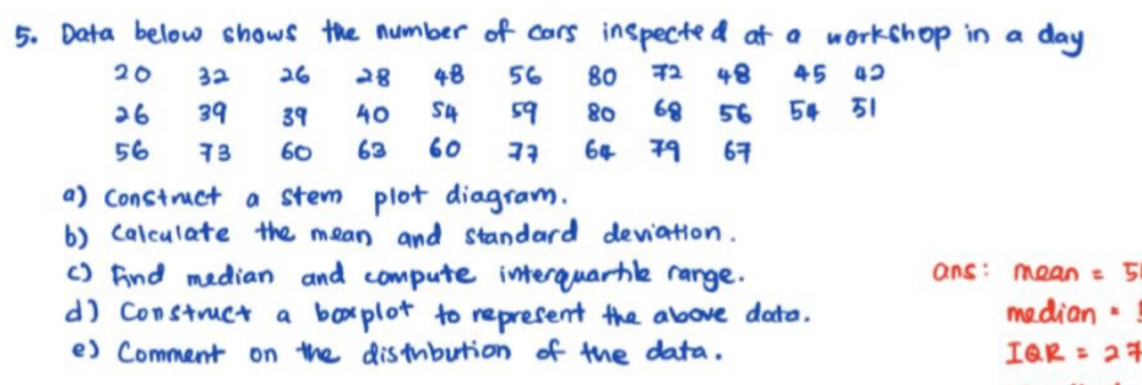 5. Data below shows the number of cars inspected at a workshop in a day
20 32 26 28 48 56 80 72 48 45 42
26 39 39 40 54 59 80 68 56 54 51
56 73 60 63 60 77 64 79 67
a) Construct a stem plot diagram.
b) Calculate the mean and standard deviation.
c) Find median and compute interquartile range.
d) Construct a boxplot to represent the above data.
e) Comment on the distribution of the data.
ans: mean = 5
median =
IQR = 27